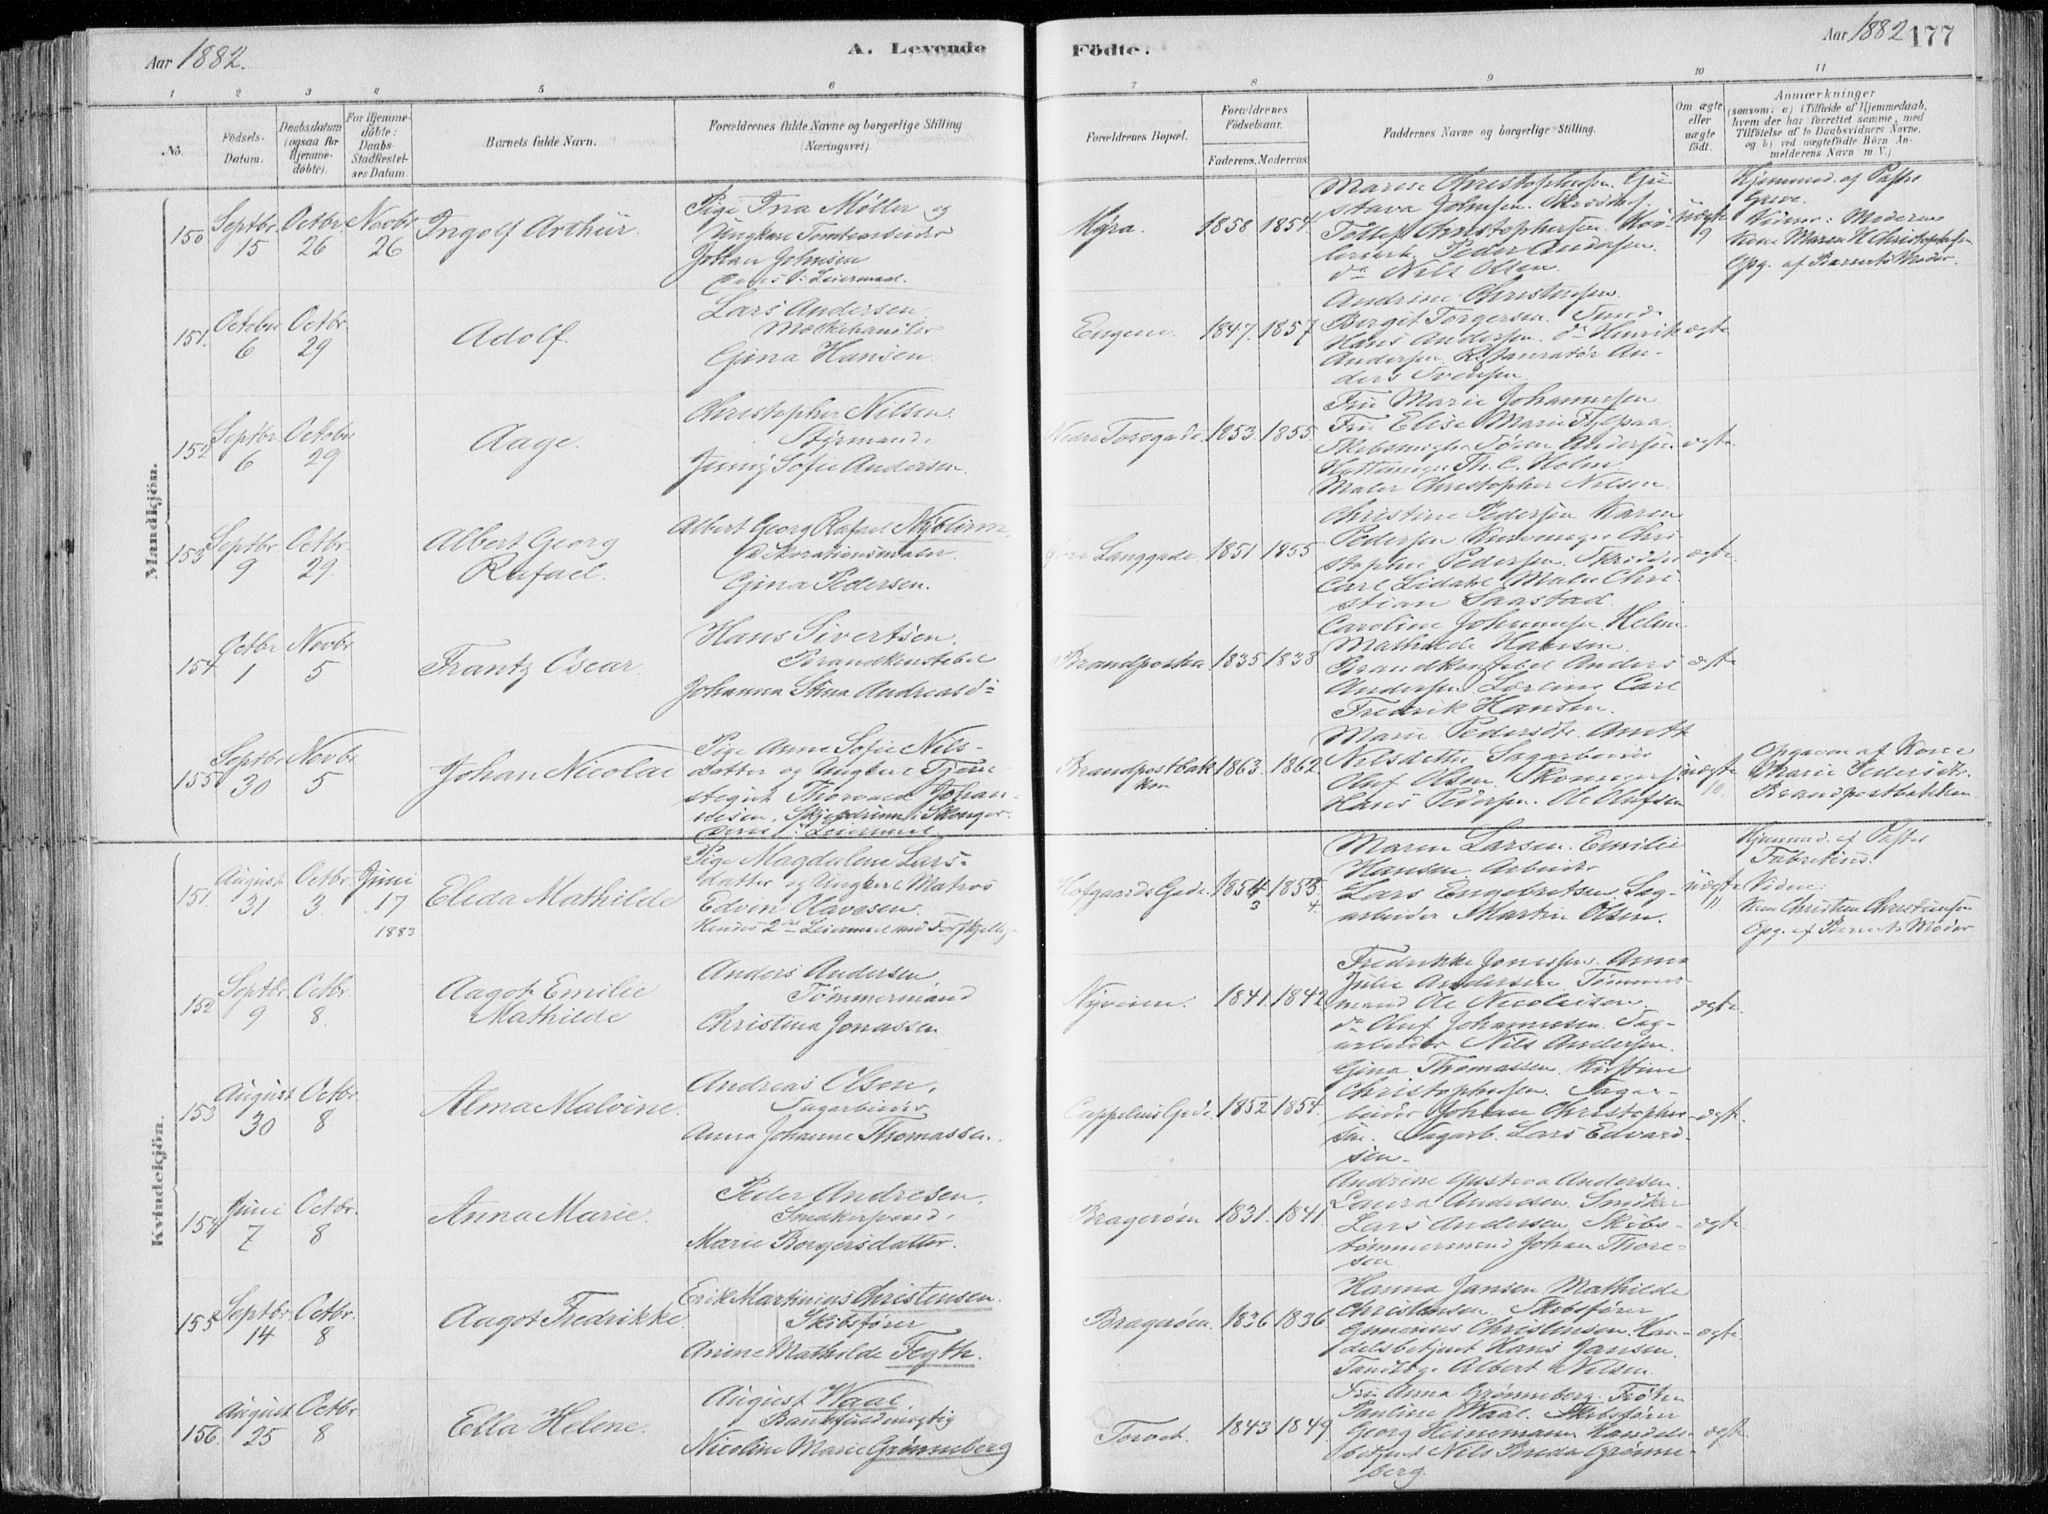 Aar 1882.
A. Levende
Födte.
Aar 1882
177
1 2 3 4 5 6 7 8 9 10 11
No.
Födsels-Datum.
Daabsdatum (ogsaa for Hjemmedöbte).
For Hjemmedöbte: Daabs-Stadfæstelses Datum
Barnets fulde Navn.
Forældrenes fulde Navne og borgerlige Stilling (Næringsvei).
Forældrenes Bopæl.
Forældrenes Födselsaar.
Faderens. Moderens.
Faddernes Navne og borgerlige Stilling.
Om ægte eller uægte födt.
Anmærkninger
(saasom: a) i Tilfælde af Hjemmedaab, hvem der har forrettet samme, med Tilföielse af to Daabsvidners Navne, og b) ved uægtefödte Börn Anmelderens Navn m. V.)
Mandkjön.
150 Septbr. 15 Octbr. 26 Novbr. 26
Ingolf Arthur.
Pige Ina Møller og
Ungkarl Tømtearbeider
Johan Johnsen
Begges 1. Leiermaal.
Myra. 1858 1854.
Maren Christophersen. Gu-
stava Johnsen. Skrædder
Peder Andersen.
do Nils Olsen
uægte 9
Hjemmed. af Pastor
Vidner: Moderen
Kone Maren K Christophersen
Opg. af Barnets Moder.
151. October 6 Octbr. 29
Adolf.
Lars Andersen.
Gina Hansen.
Engene. 1847. 1857
Andrine Christensen.
Bergit Torgersen.
Hans Andersen. do Henrik
Andersen. Restauratør An-
ders Svensen.
ægte
152 Septbr. 6 October 29
Aage.
Christopher Nilsen.
Styrmand.
Jenny Sofie Andersen.
Nedre Torvgade. 1853. 1855.
Fru Marie Johannesen.
Fru Elise Marie
Skibsmægler Sören Andersen
Th. C. Holm
Maler Christopher Nilsen.
ægte
153 Septbr. 9 Octbr. 29
Albert Georg
Rafael.
Albert Georg Rafael Nyblinn.
Dekorationsmaler.
Gina Pedersen.
Langgade. 1851 1855
Christine Pedersen Karen
Pedersen Chri-
stopher Pedersen. Skrædder
Carl Lidahl Maler Chri-
stian Saastad.
ægte.
154 Octbr. 1 Novbr. 5
Frantz Oscar.
Hans Sivertsen.
Brandkonstabel
Johanna Stina Andreasd.
Brandposten 1835 1838
Caroline Johnsen
Mathilde Hansen.
Brandkonstabel Anders
Andersen. Lærling Carl
Fredrik Hansen.
ægte
155 Septbr. 30 Novbr. 5
Johan Nicolai
Pige Anne Sofie Nils-
datter og Ungkarl Tjene-
stegut Thorvald Johan-
nesen. Skjødrum i Skouger.
Begges 1. Leiermaal
Brandpostbakken 1863. 1862.
Marie Pedersdt. Anette
Nilsdatter Sagarbeider
Oluf Olsen. Skomager
Hans Pedersen. Ole Olufsen
uægte 10.
Opgaven af Kone
Marie Pedersdtr.
Brandpostbakken
Kvindekjön.
151. August 31 Octbr. 3. Juni 17 1883
Eleda Mathilde
Pige Magdalena Lars-
datter og Ungkarl Matros
Edvin Olavesen.
Hendes 2det Leiermaal med Forskjellig.
Hofgaards Gade. 1854 3 1853. 4.
Maren Larsen. Emilie
Hansen Arbeider
Lars Engebretsen Sag-
arbeider Martin Olsen.
uægte 11
Hjemmed. af Pastor
Fabritius.
Vidne:
Kone Christine Christensen
Opg. af Barnets Moder
152 Septbr. 9 Octbr. 8.
Aagot Emilie
Mathilde
Anders Andersen.
Tømmermand
Christina Jonassen
Nyveien. 1841. 1842
Fredrikke Jonassen. Anna
Julie Andersen. Tømmer-
mand Ole Nicolaisen.
do Oluf Johannesen. Sag-
arbeider Nils Andersen.
ægte.
153 August 30 Octbr. 8
Alma Malvine.
Andreas Olsen.
Sagarbeider
Anna Johanne Thomassen.
Cappelens Gade. 1852 1854.
Gina Thomassen. Kirstine
Christophersen. Sagar-
beider Johan Christopher-
sen. Sagarb. Lars Edvard-
sen.
ægte.
154 Juni 7 Octbr. 8
Anna Marie.
Peder Andresen.
Marie Borgersdatter.
Bragerøen 1831. 1841
Andrine Gustava Andersen.
Laura Andersen. Snedker
Lars Andersen Skibs-
tømmermand Johan Thore-
sen
ægte
155 Septbr. 14 Octbr. 8
Aagot Fredrikke.
Erik Martinius Christensen.
Skibsfører
Anine Mathilde Flygth.
Bragerøen. 1836 1836
Hanna Jansen Mathilde
Christensen. Skibsfører
Gunerius Christensen. Han-
delsbetjent Hans Jansen.
Tandlæge Albert Nilsen.
ægte
156. August 25 Octbr. 8
Ella Helene.
August Waal.
Bankfuldmægtig
Nicoline Marie Grønneberg
Torvet. 1843 1849.
Fru Anna Grønneberg. Frøken
Pauline Waal. Skibsfører
Georg Heinemann Handels-
betjent Nils Breda Grønne-
berg.
ægte